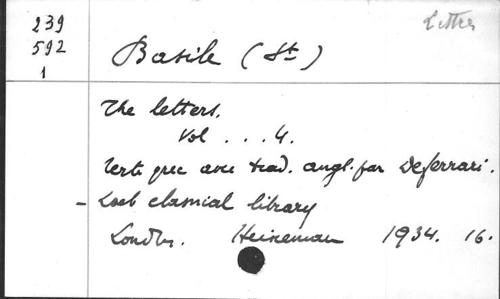 239
592
1
Lettres
Basile (St)
The letters.
Vol . . . 4.
Texte grec avec trad. angl. par Deferrari.
- Loeb classical library
Londres. Heineman 1934. 16.